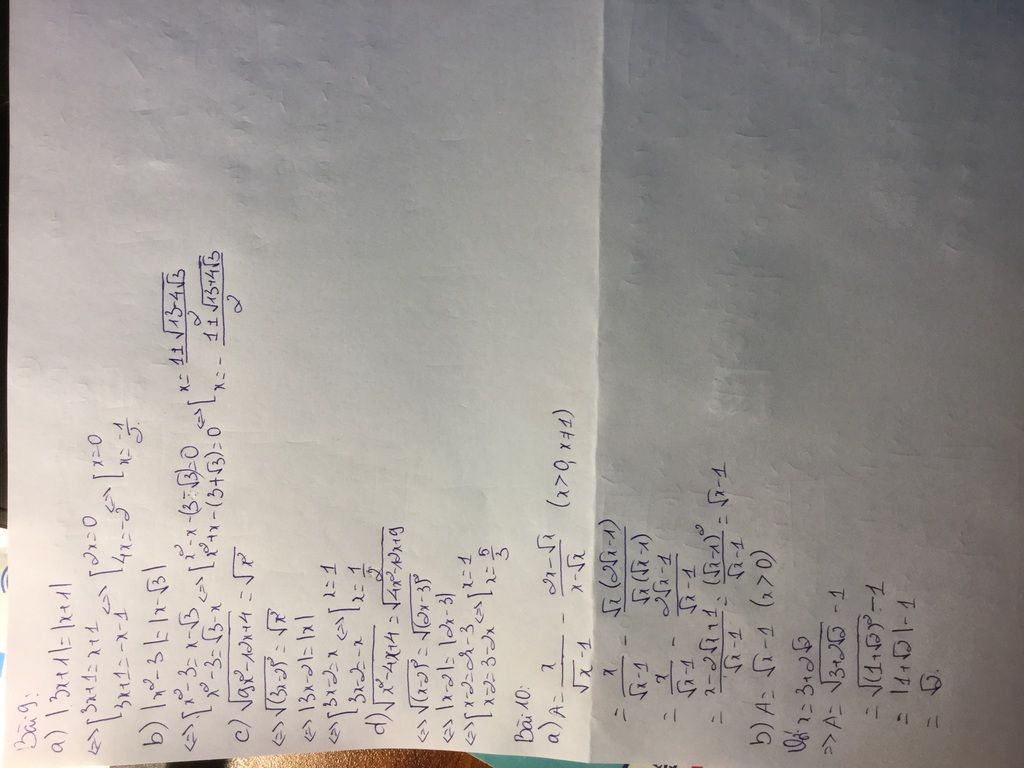 Bài 9:
a) |3x+1|=|x+1|
<=> [3x+1=x+1 / 3x+1=-x-1 <=> [2x=0 / 4x=-2 <=> [x=0 / x=-1/2
b) |x²-3|=|x-√3|
<=> [x²-3=x-√3 / x²-3=√3-x <=> [x²-x-(3-√3)=0 / x²+x-(3+√3)=0 <=> [x=(1±√(13-4√3))/2 / x=-(1±√(13+4√3))/2
c) √(9x²-12x+4)=√x²
<=> √(3x-2)²=√x²
<=> |3x-2|=|x|
<=> [3x-2=x / 3x-2=-x <=> [x=1 / x=1/2
d) √(x²-4x+4)=√(4x²-12x+9)
<=> √(x-2)²=√(2x-3)²
<=> |x-2|=|2x-3|
<=> [x-2=2x-3 / x-2=3-2x <=> [x=1 / x=5/3
Bài 10:
a) A= x/(√x-1) - (2x-√x)/(x-√x) (x>0, x≠1)
= x/(√x-1) - √x(2√x-1)/(√x(√x-1))
= x/(√x-1) - (2√x-1)/(√x-1)
= (x-2√x+1)/(√x-1) = (√x-1)²/(√x-1) = √x-1
b) A=√x-1 (x>0)
x=3+2√2
=> A=√(3+2√2)-1
=√(1+√2)²-1
=|1+√2|-1
=√2.